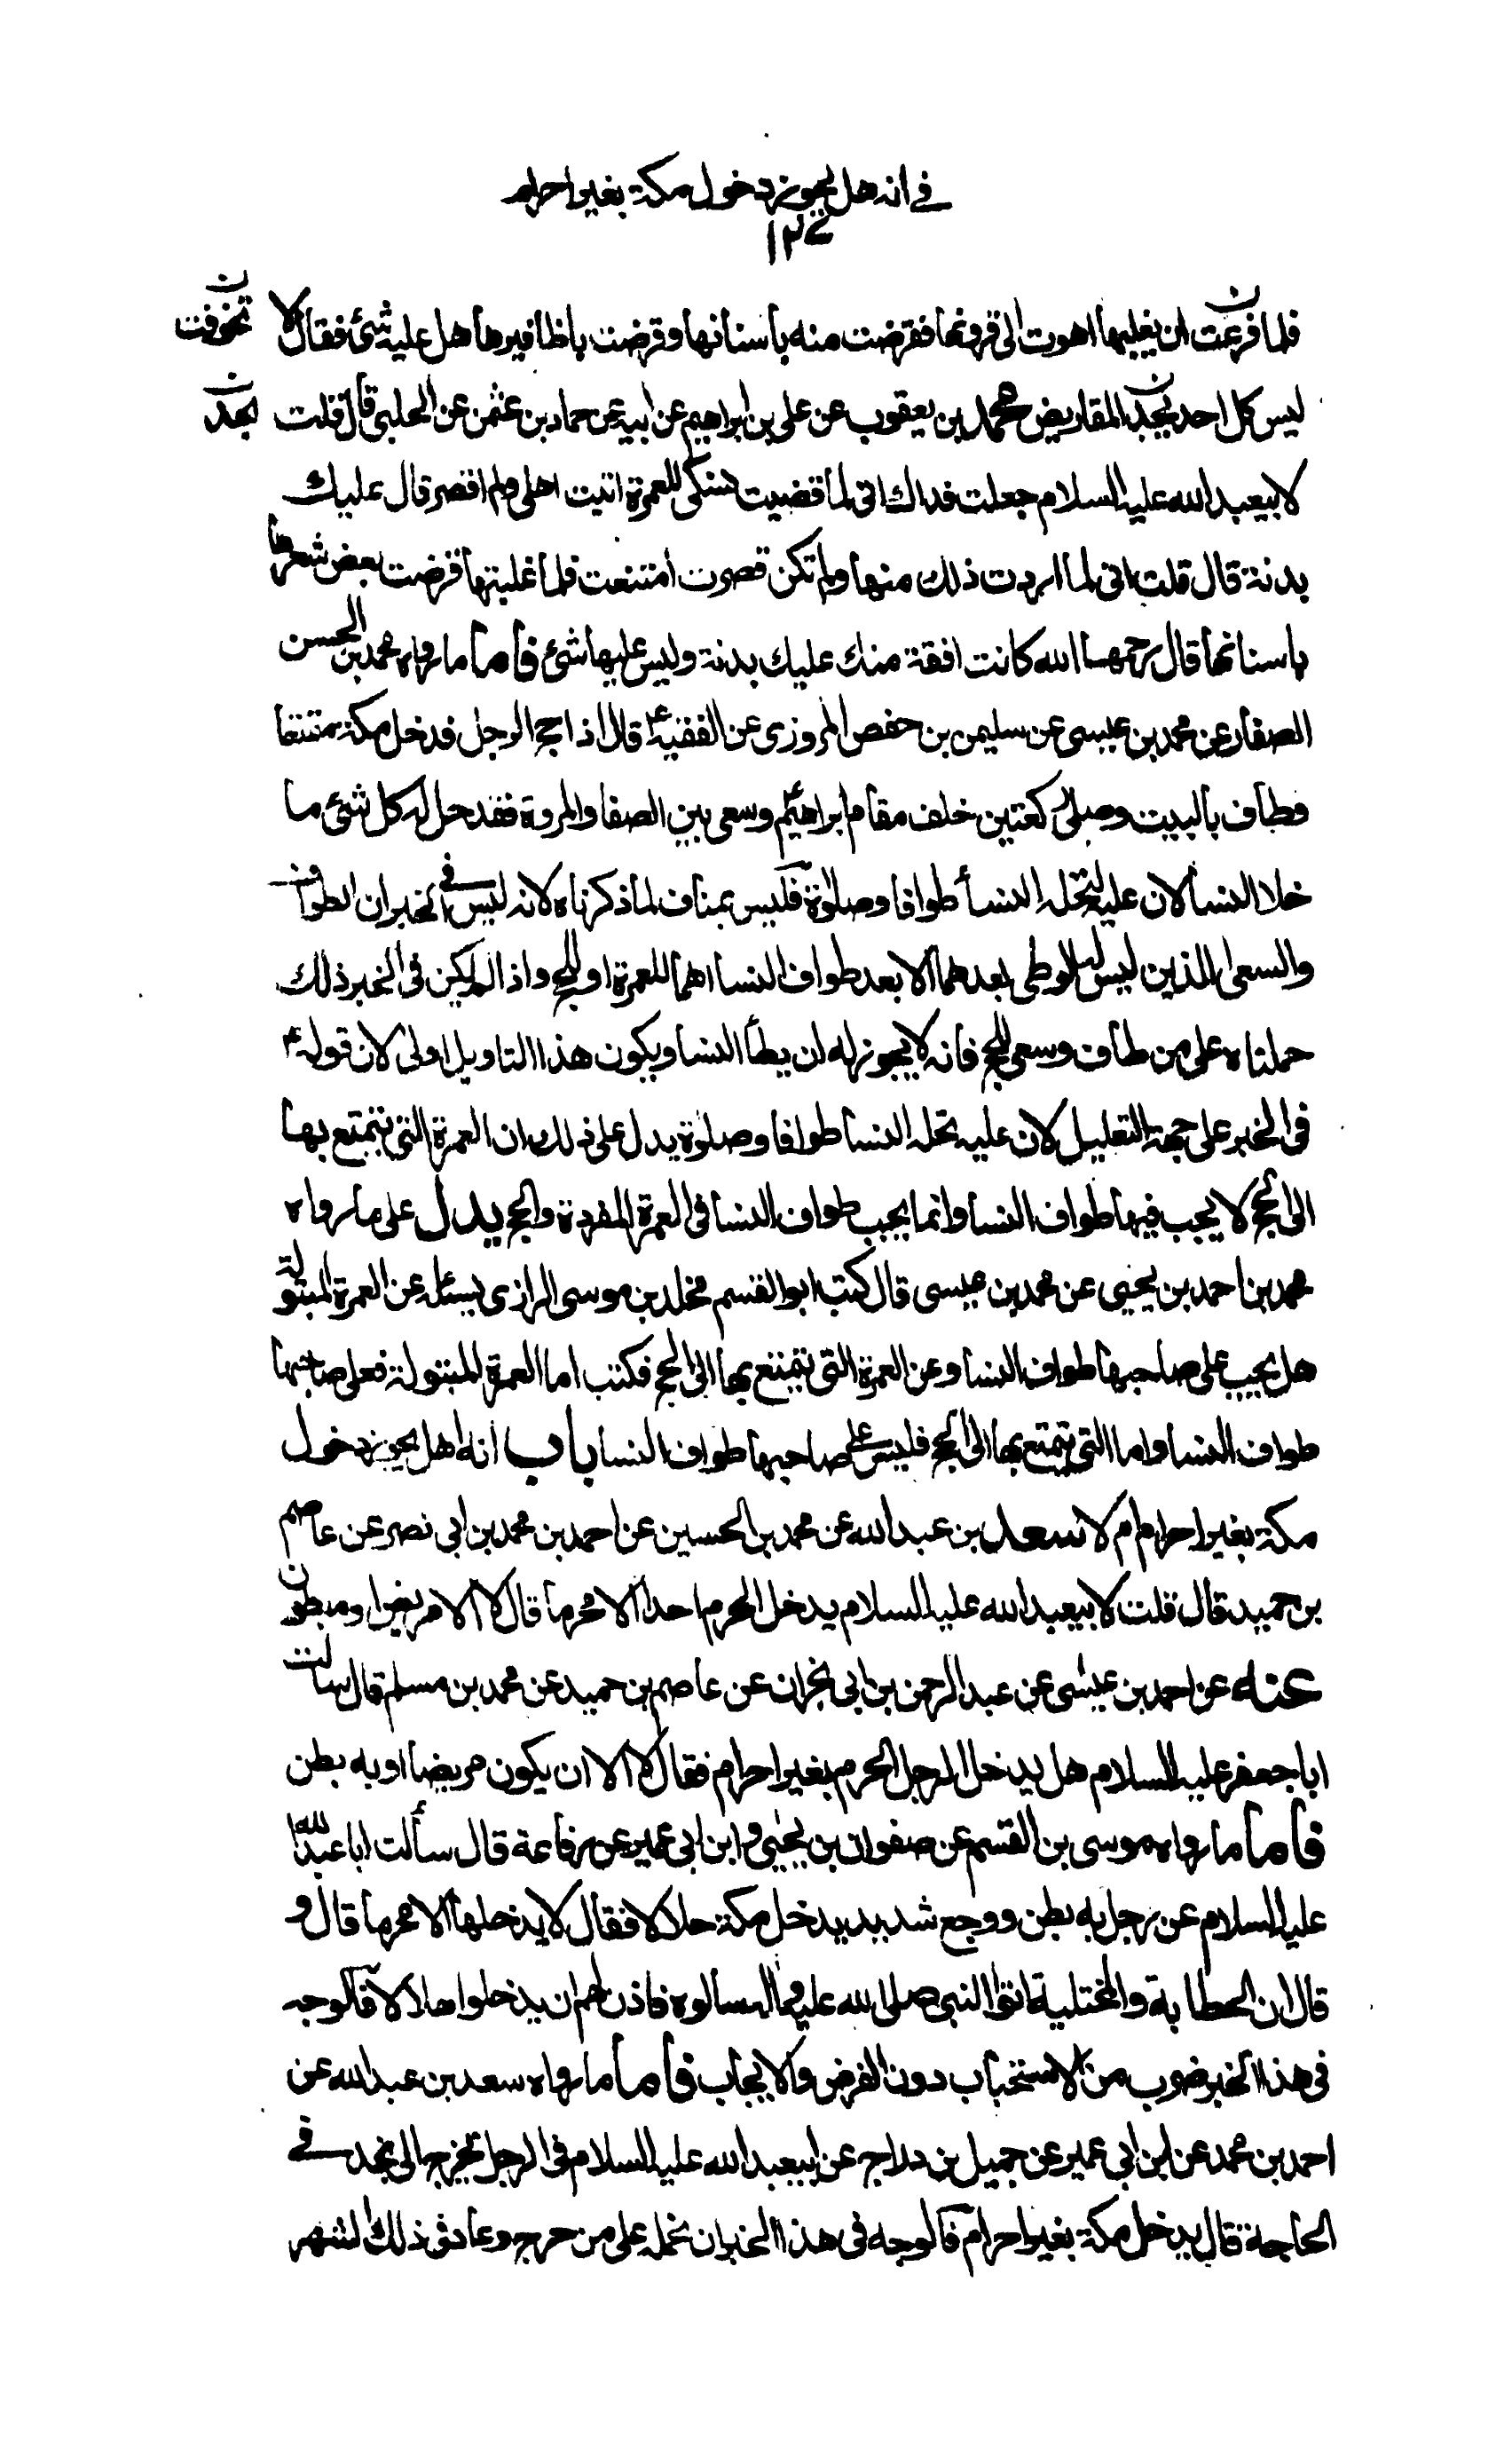 في انه هل يجوز دخول مكة بغير احرام
١٢٧
فلما فزعت ان يغلبها اهوت الى قرونها فقرضت منه باسنانها وقرضت باظافيرها هل عليه شئ فقال لا
تخوفت ن
ليس كل احد يجد المقاريض محمد بن يعقوب عن على بن ابراهيم عن ابيه عن حماد بن عثمن عن الحلبى قال قلت
يجد ن
لابيعبد الله عليه السلام جعلت فداك انى لما قضيت نسكى للعمرة اتيت اهلى ولم اقصر قال عليك
بدنة قال قلت انى لما اردت ذلك منها ولم تكن قصرت امتنعت فلما غلبتها قرضت بعض شعرها
باسنانها قال رحمها الله كانت افقه منك عليك بدنة وليس عليها شئ فاما ما رواه محمد بن الحسن
الصفار عن محمد بن عيسى عن سليمن بن حفص المروزى عن الفقيه ع قال اذا حج الرجل فدخل مكة متمتعا
وطاف بالبيت وصلى ركعتين خلف مقام ابراهيم وسعى بين الصفا والمروة فقد حل له كل شئ ما
خلا النسأ لان عليه لتحله النسأ طوافا وصلوة فليس بمناف لما ذكرناه لانه ليس في الخبر ان الطواف
والسعى الذين ليس له الوطى بعدهما الا بعد طواف النسا اهما للعمرة او للحج واذا لم يكن فى الخبر ذلك
حملناه على من طاف وسعى للحج فانه لا يجوز له ان يطأ النسا ويكون هذا التاويل اولى لان قوله ع
فى الخبر على جهة التعليل لان عليه تحله النسا طوافا وصلوة يدل على ذلك ان العمرة التى يتمتع بها
الى الحج لا يجب فيها طواف النسا وانما يجب طواف النسا فى العمرة المفردة والحج يدل على ما رواه
محمد بن احمد بن يحيى عن محمد بن عيسى قال كتب ابو القسم مخلد بن موسى الرازى يسئله عن العمرة المبتولة
هل يجب على صاحبها طواف النسا وعن العمرة التى يتمتع بها الى الحج فكتب اما العمرة المبتولة فعلى صاحبها
طواف النسا واما التى يتمتع بها الى الحج فليس على صاحبها طواف النسا باب انه هل يجوز دخول
مكة بغير احرام ام لا سعد بن عبد الله عن محمد بن الحسين عن احمد بن محمد بن ابى نصر عن عاصم
بن حميد قال قلت لابيعبد الله عليه السلام يدخل الحرم احد الا محرما قال لا الا مريض او مبطون
عنه عن احمد بن عيسى عن عبد الرحمن بن ابى نجران عن عاصم بن حميد عن محمد بن مسلم قال سالت
ابا جعفر عليه السلام هل يدخل الرجل الحرم بغير احرام فقال لا الا ان يكون مريضا او به بطن
فاما ما رواه موسى بن القسم عن صفوان بن يحيى وابن ابى عمير عن رفاعة قال سألت ابا عبد الله
عليه السلام عن رجل به بطن ووجع شديد يدخل مكة حلالا فقال لا يدخلها الا محرما قال و
قال ان الحطابة والمختلية اتوا النبى صلى الله عليه واله سالوه فاذن لهم ان يدخلوا حلالا فالوجه
فى هذا الخبر ضرب من الاستحباب دون الفرض والايجاب فاما ما رواه سعد بن عبد الله عن
احمد بن محمد عن ابن ابى عمير عن جميل بن دراج عن ابيعبد الله عليه السلام فى الرجل يخرج الى نجد في
الحاجة قال يدخل مكة بغير احرام فالوجه فى هذا الخبر ان نحمله على من خرج وعاد فى ذلك الشهر